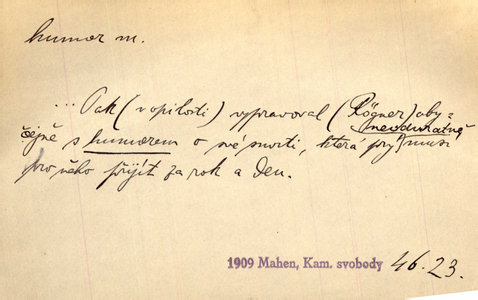 humor m.
... Pak (v opilosti) vypravoval (Rögner) oby-
čejně s humorem o své smrti, která prý neodvratně musí
pro něho přijít za rok a den.
1909 Mahen, Kam. svobody 46.23.